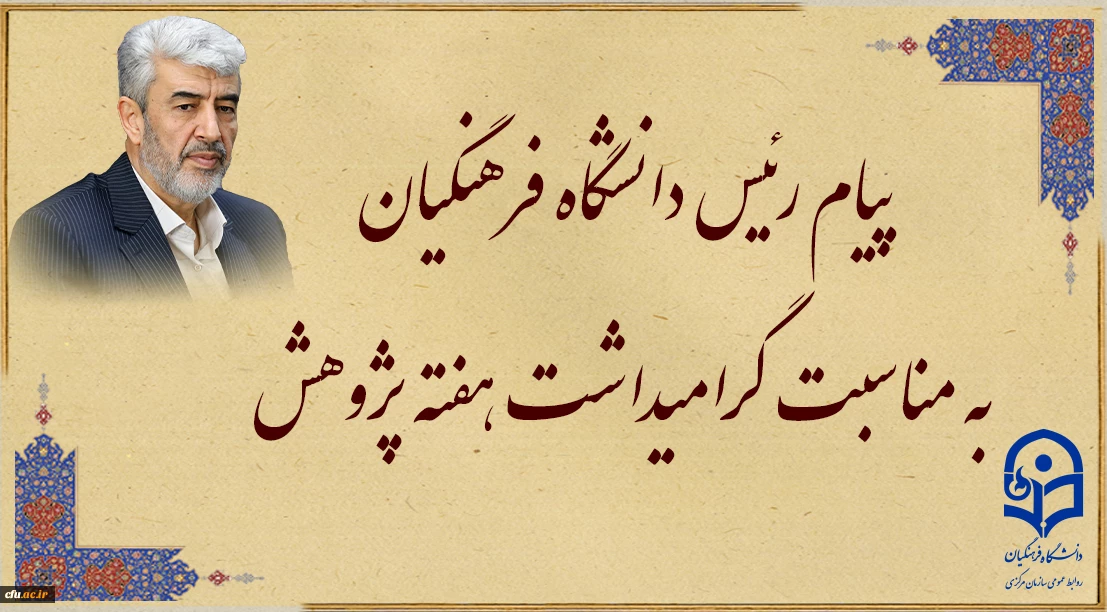 پیام رئیس دانشگاه فرهنگیان
به مناسبت گرامیداشت هفته پژوهش
دانشگاه فرهنگیان
روابط عمومی سازمان مرکزی
cfu.ac.ir